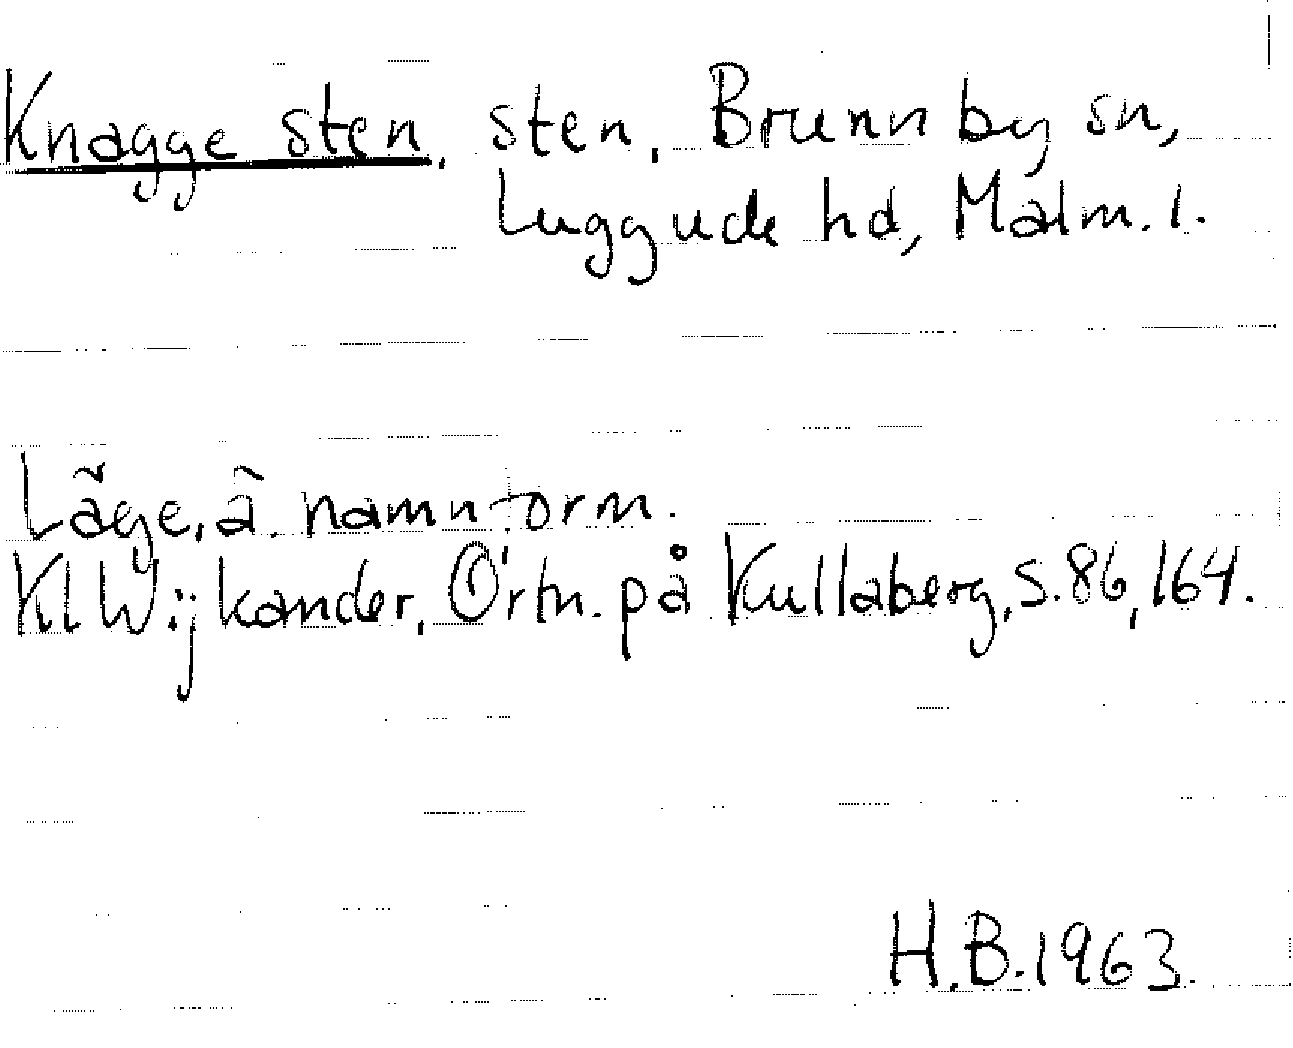 Knagge sten, sten, Brunnby sn,
Luggude hd, Malm. l.
Läge, ä. namnform.
Kl W:jkander, Ortn. på Kullaberg, s. 86, 164.
H.B. 1963.